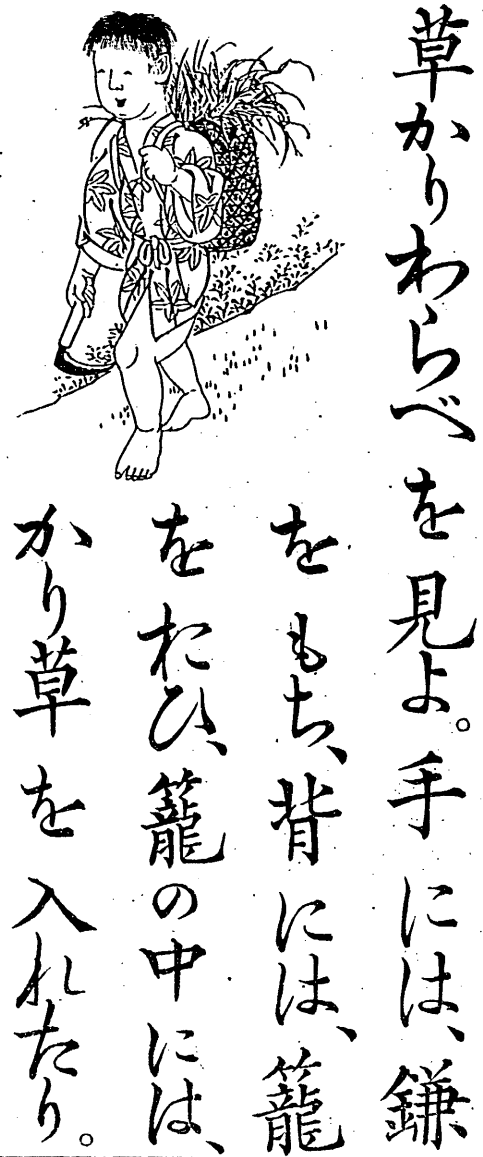 草かりわらべを見よ。手には、鎌
をもち、背には、籠
をおひ、籠の中には、
かり草を入れたり。